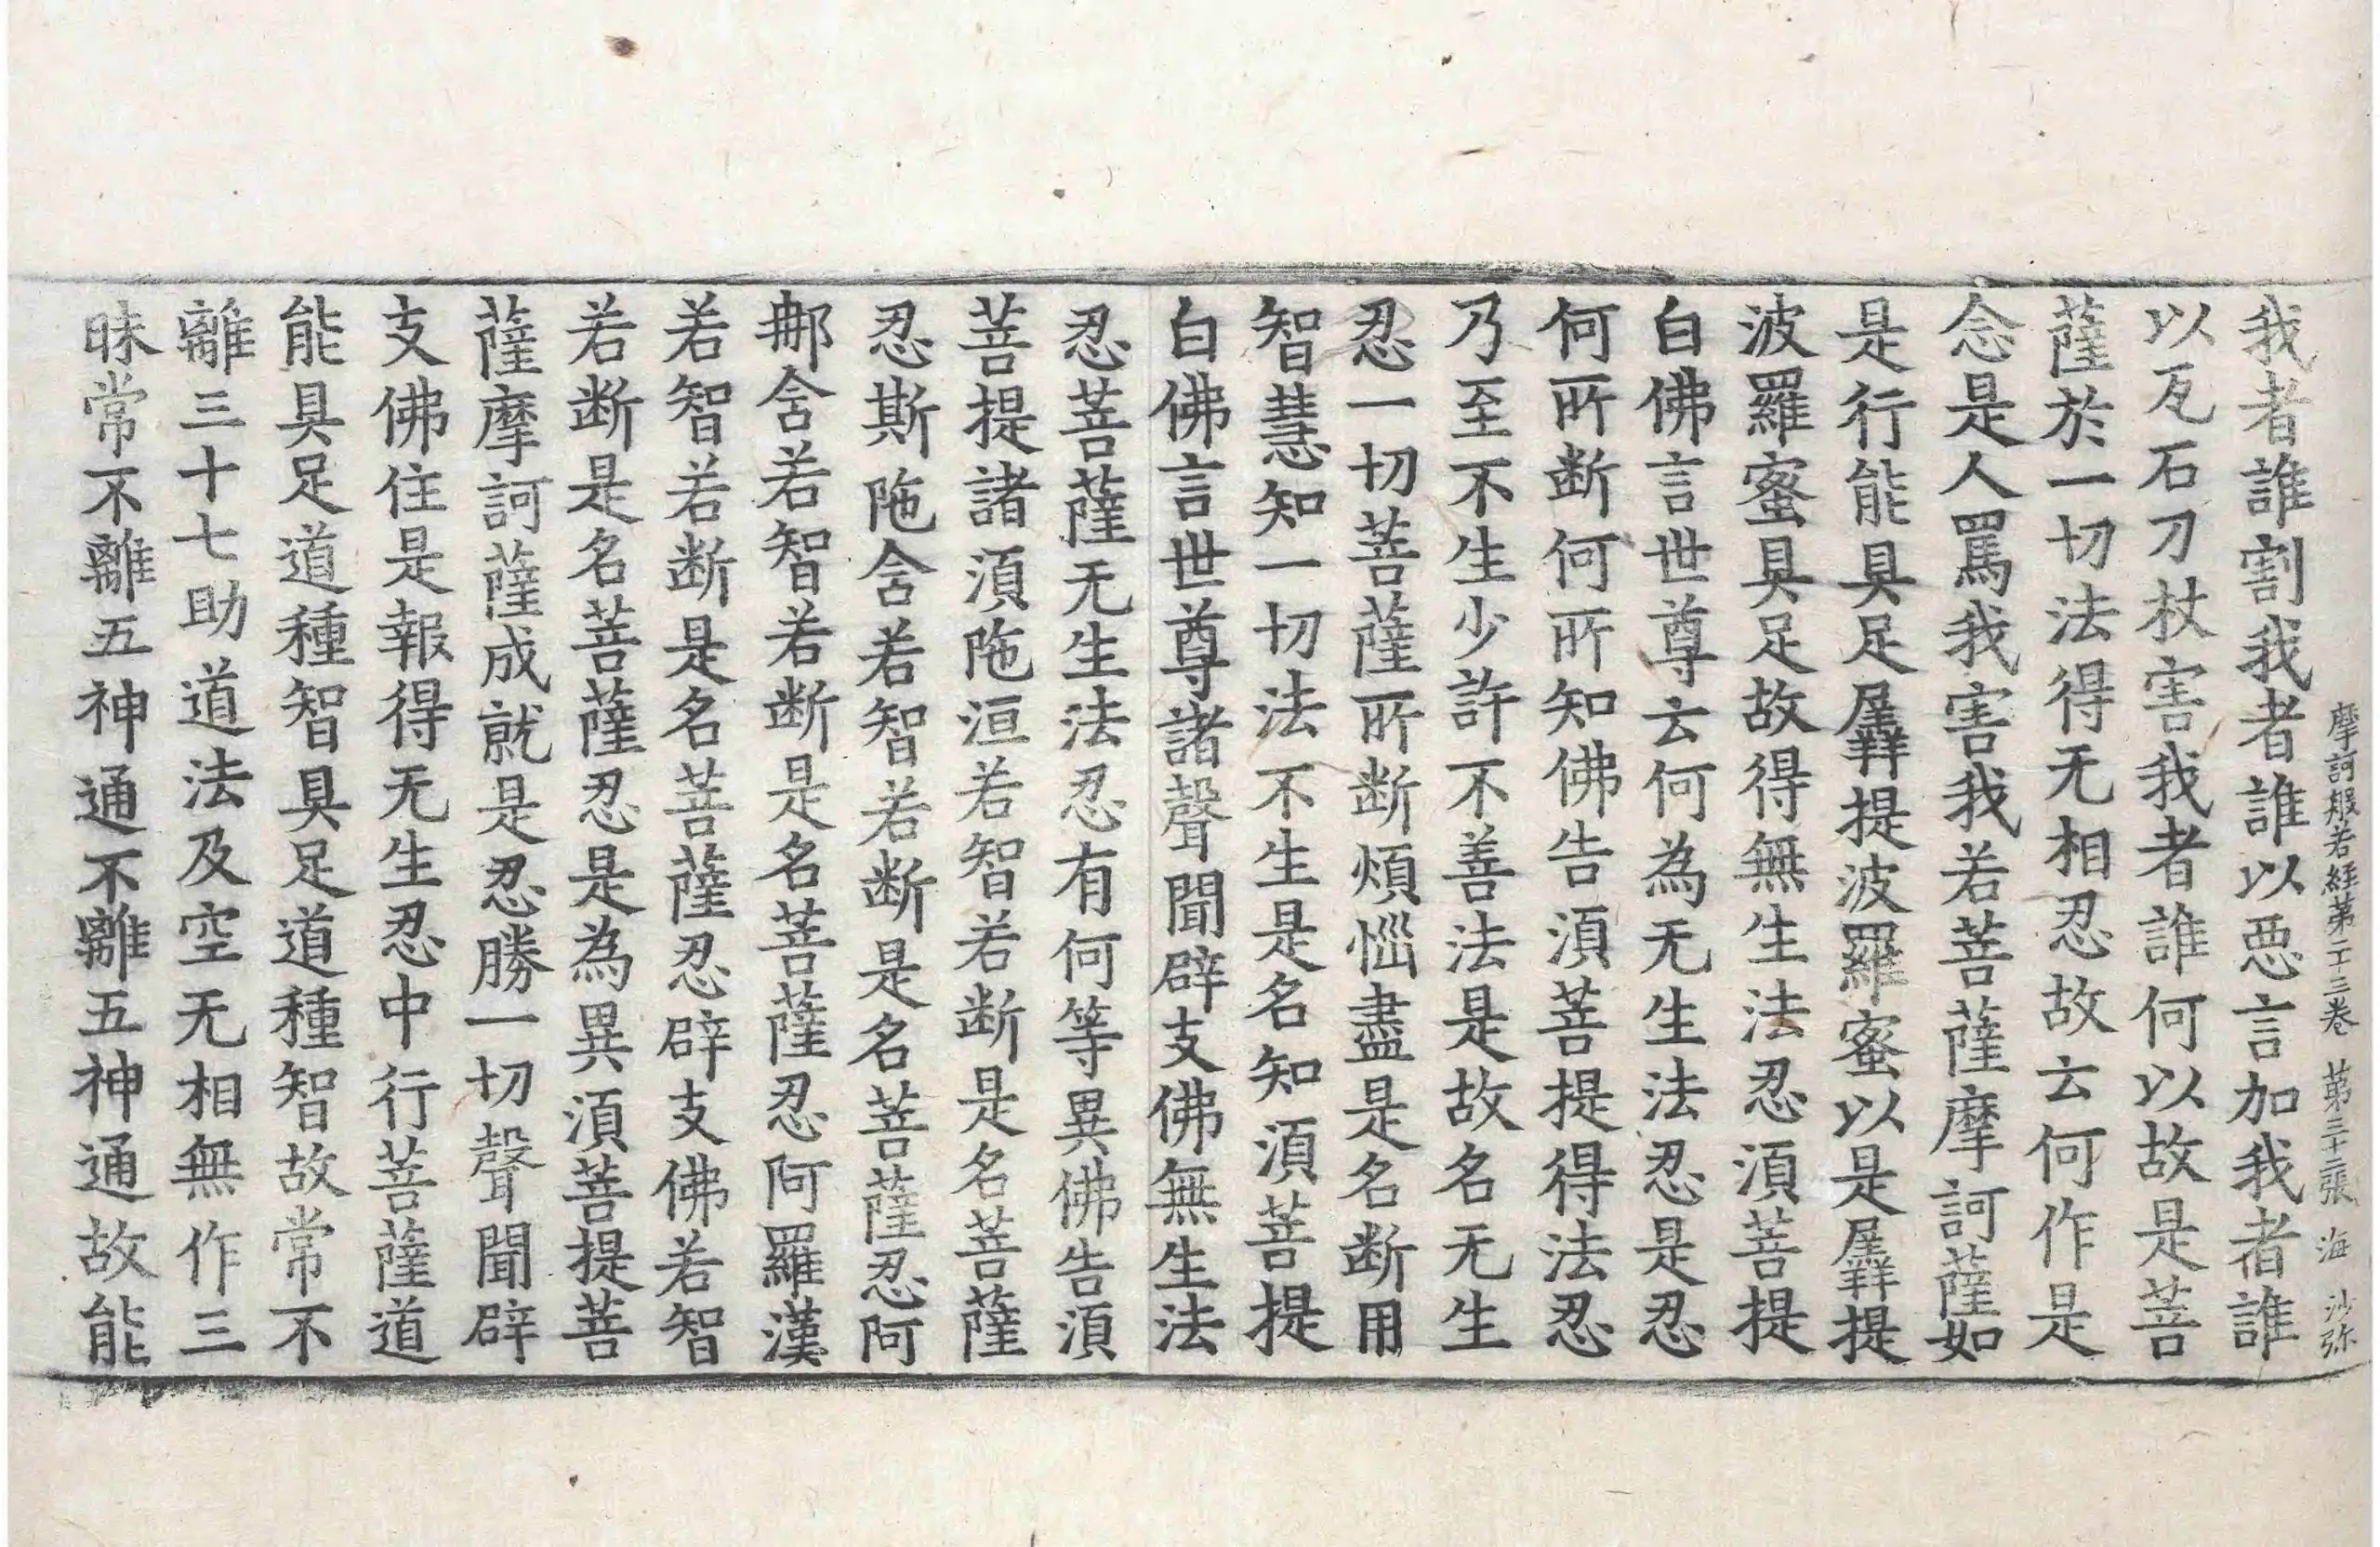 摩訶般若經第二十三卷 第三十二張 海 沙弥
我者誰割我者誰以惡言加我者誰
以瓦石刀杖害我者誰何以故是菩
薩於一切法得无相忍故云何作是
念是人罵我害我若菩薩摩訶薩如
是行能具足羼提波羅蜜以是羼提
波羅蜜具足故得無生法忍湏菩提
白佛言世尊云何為无生法忍是忍
何所断何所知佛告湏菩提得法忍
乃至不生少許不善法是故名无生
忍一切菩薩所断煩惱盡是名断用
智慧知一切法不生是名知湏菩提
白佛言世尊諸聲聞辟支佛無生法
忍菩薩无生法忍有何等異佛告湏
菩提諸湏陁洹若智若断是名菩薩
忍斯陁含若智若断是名菩薩忍阿
那含若智若断是名菩薩忍阿羅漢
若智若断是名菩薩忍辟支佛若智
若断是名菩薩忍是為異湏菩提菩
薩摩訶薩成就是忍勝一切聲聞辟
支佛住是報得无生忍中行菩薩道
能具足道種智具足道種智故常不
離三十七助道法及空无相無作三
昧常不離五神通不離五神通故能